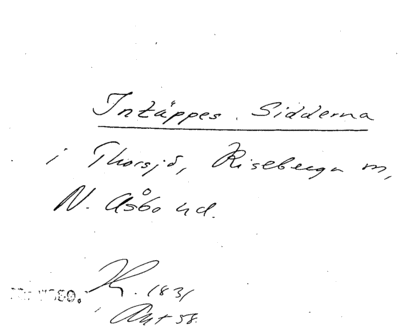 Intäppes. Sidderna
i Thorsjö, Riseberga m,
N. Åsbo hd.
K. 1831
Akt 58.